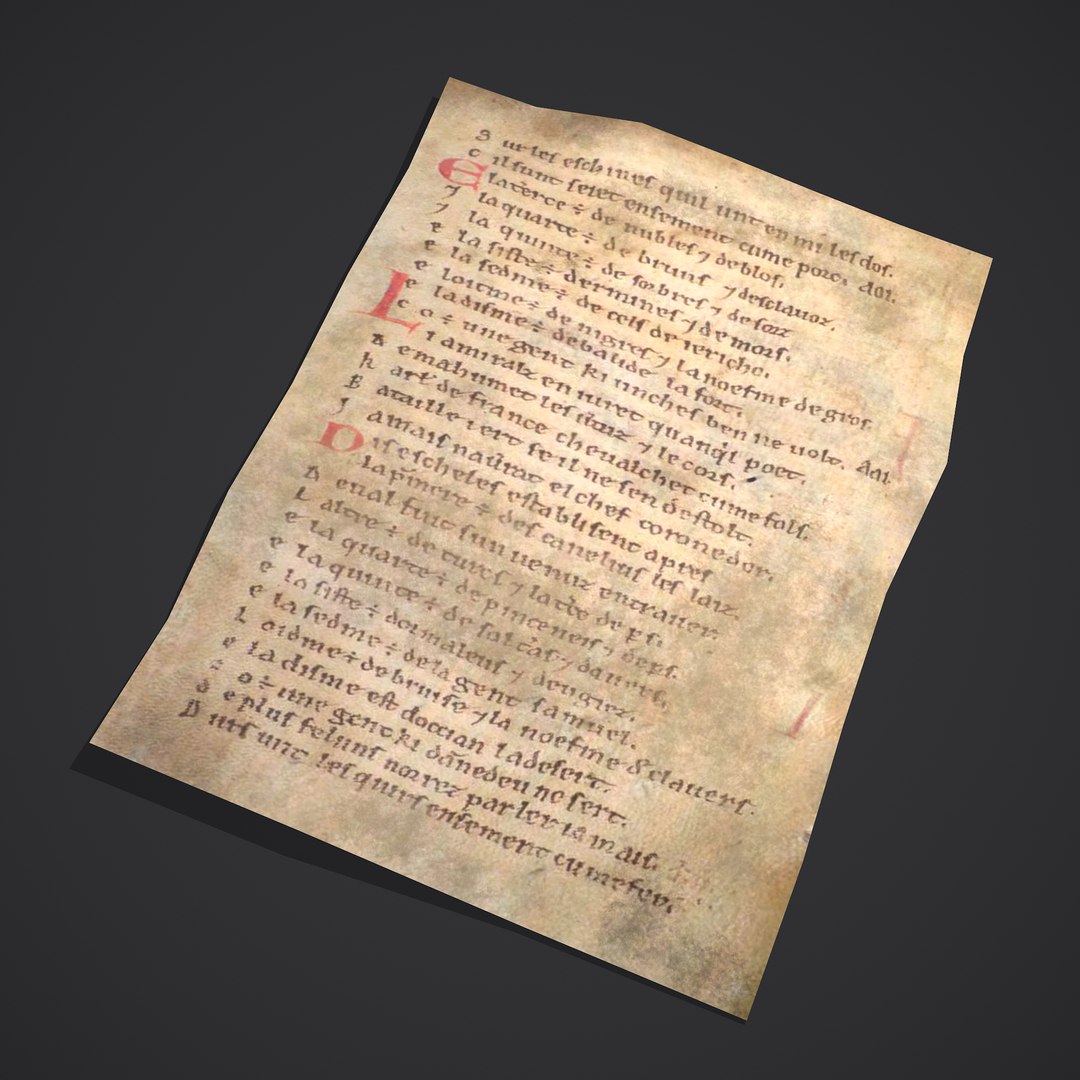 Sur les eschines quil unt en mi les dos.
Cil sunt seiet ensement cume porc. AOI.
E la terce ÷ de nubles ⁊ de blos.
⁊ la quarte ÷ de bruns ⁊ desclauoz.
⁊ la quinte ÷ de sorbres ⁊ de sorz
e la siste ÷ dermines ⁊ de mors.
e la sedme ÷ de cels de iericho.
e loitme ÷ de nigres ⁊ la noefme de gros.
e la disme ÷ de balide la fort.
co ÷ une gent ki unches ben ne uolt. AOI.
Li amiralz en iuret quanqil poet.
De mahumet les ⁊ le cors.
karl de france cheualchet cume fols.
Bataille iert se il ne sen destolt.
Jamais naurat el chef corone dor.
Dis escheles establisent apres
La pimere ÷ des canelius les laiz.
De ual fuit sun uenuz en trauer.
Laltre ÷ de turcs ⁊ la tce de ps.
e la quarte ÷ de pinceneis ⁊ de pers.
e la quinte ÷ de soltras ⁊ dauers.
e la siste ÷ dormaleus ⁊ deugiez.
e la sedme ÷ de la gent samuel.
Loidme ÷ de bruise ⁊ la noefme de clauers.
e la disme est doccian la desert.
co ÷ une gent ki dānedeu ne sert.
de plus feluns norrez parler iamais.
Durs unt les quirs ensement cume fer.